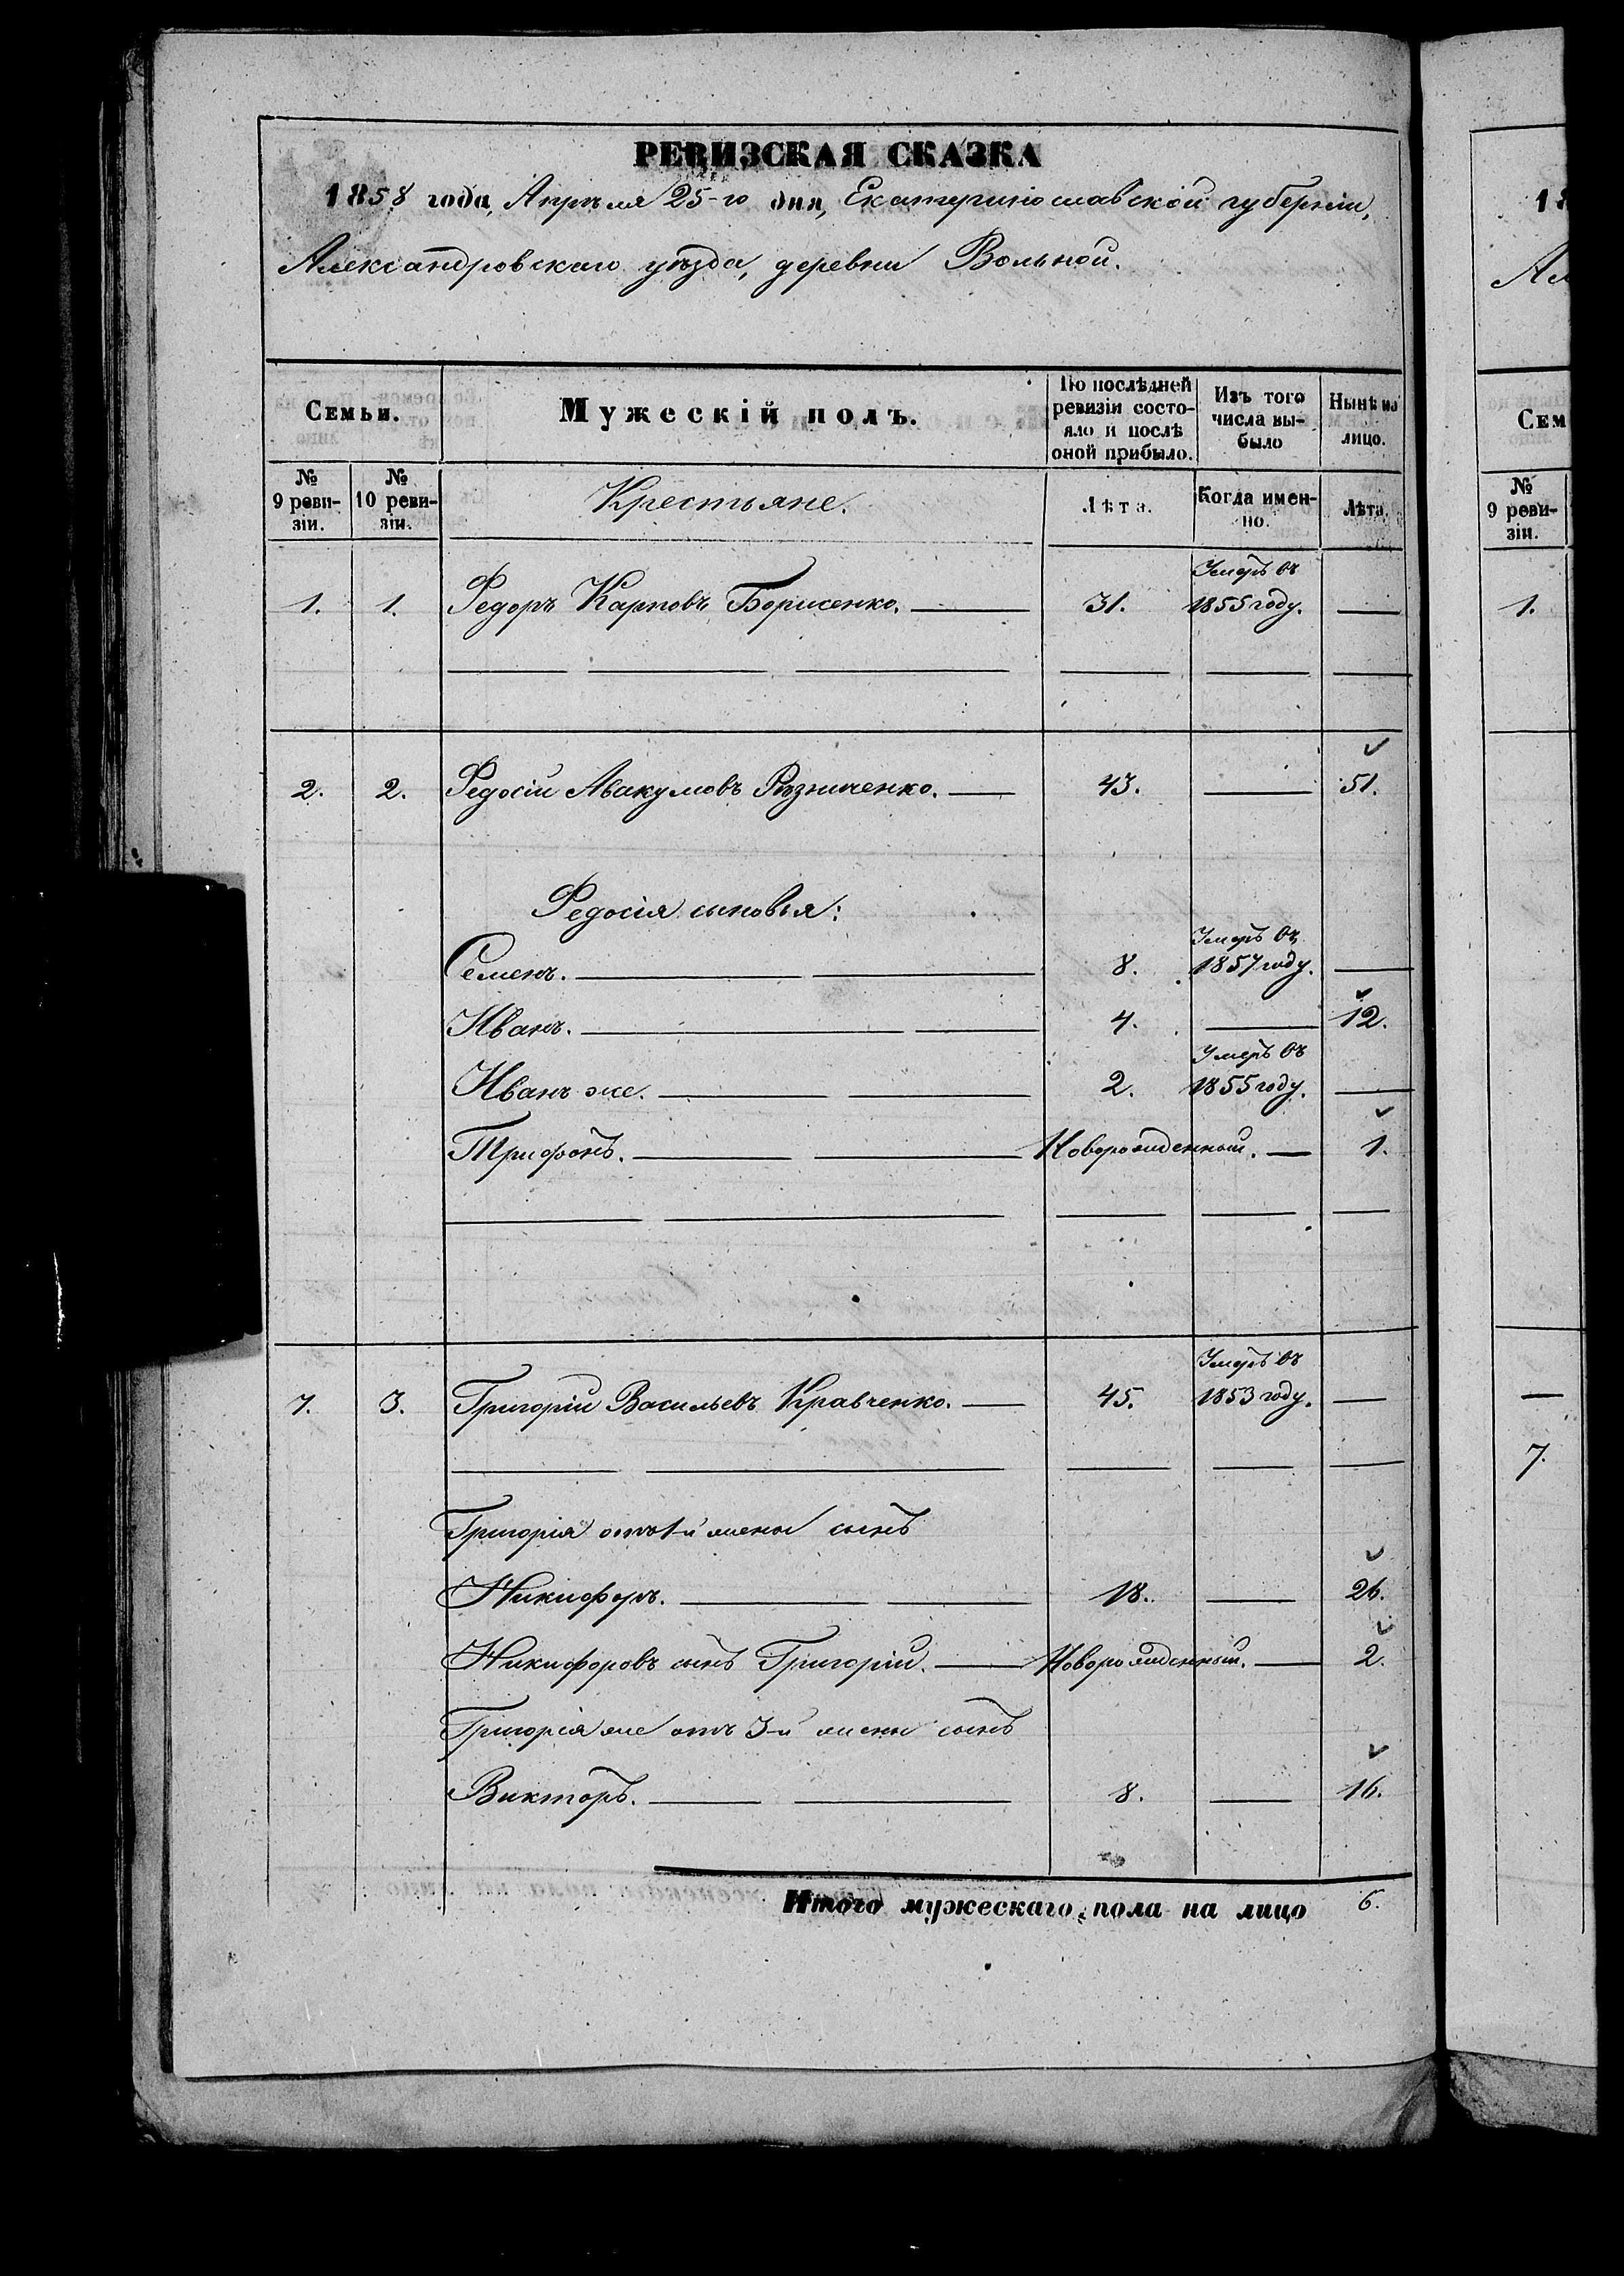 РЕВИЗСКАЯ СКАЗКА
1858 года, Апрѣля 25-го дня, Екатеринославской губерніи,
Александровскаго уѣзда, деревни Вольной.
Семьи.
Мужескій полъ.
По послѣдней ревизіи состояло и послѣ оной прибыло.
Изъ того числа выбыло
Нынѣ на лицо.
№ 9 реви-зіи.
№ 10 реви-зіи.
Крестьяне.
Лѣта.
Когда имен-но.
Лѣта.
Умеръ въ
1. 1. Федоръ Карповъ Борисенко. — 31. 1855 году. —
2. 2. Федосій Авакумовъ Рѣзниченко. — 43. — 51.
Федосія сыновья:
Умеръ въ
Семенъ. — 8. 1857 году. —
Иванъ. — 4. — 12.
Умеръ въ
Иванъ же. — 2. 1855 году. —
Трифонъ. — Новорожденный. — 1.
Умеръ въ
7. 3. Григорій Васильевъ Кравченко. — 45. 1853 году. —
Григорія отъ 1-й жены сынъ
Никифоръ. — 18. — 26.
Никифоровъ сынъ Григорій. — Новорожденный. — 2.
Григорія же отъ 3-й жены сынъ
Викторъ. — 8. — 16.
Итого мужескаго пола на лицо 6.
18
Ал
Сем
№ 9 реви-зіи.
1.
—
7.